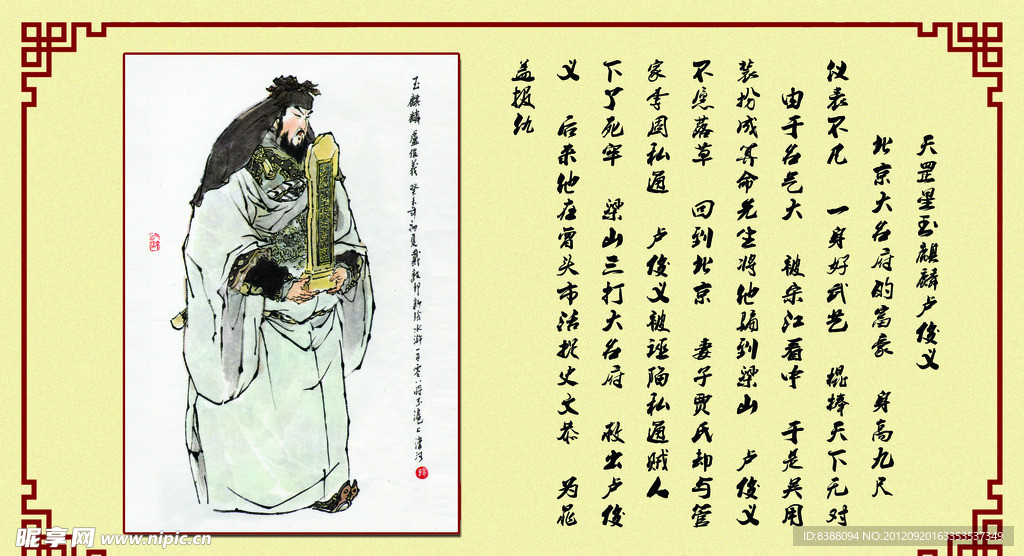 天罡星玉麒麟卢俊义
北京大名府的富豪 身高九尺
仪表不凡 一身好武艺 棍棒天下无对
由于名气大 被宋江看中 于是吴用
装扮成算命先生将他骗到梁山 卢俊义
不愿落草 回到北京 妻子贾氏却与管
家李固私通 卢俊义被诬陷私通贼人
下了死牢 梁山三打大名府 救出卢俊
义 后来他在曾头市活捉史文恭 为晁
盖报仇
玉麒麟 盧俊義 癸未年初夏戴敦邦新绘水浒一百零八将于滬上
昵享网 www.nipic.cn
ID:8388094 NO:20120920163353537349